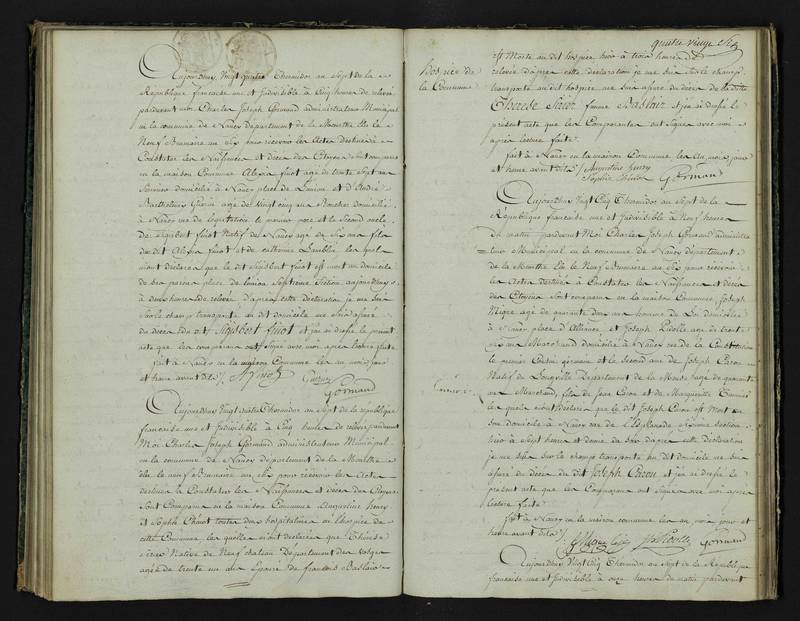 Aujourd'huy Vingt quatre Thermidor an Sept de la
République française une et Indivisible à Cinq heures de relevé
pardevant moi Charles Joseph Gormand administrateur Municipal
en la commune de Nancy Département de la Meurthe élu le
Neuf Brumaire an pour recevoir les Actes Destinés à
Constater les Naissances et décès des Citoyens sont comparus
en la maison Commune Alexis finot agé de trente Sept ans
domicilié à Nancy place de L'union et d'André
Barthelemy agé de Vingt cinq ans domicilié
à Nancy rue de législation, le premier pere et le Second oncle
de Sigisbert finot Natif de Nancy agé de Six ans fils
du dit Alexis finot et de catherine lesquels
m'ont déclaré que le dit Sigisbert finot est mort au domicile
de son pere place de l'union Septieme Section aujourd'huy
à deux heures de relevé d'après cette déclaration je me suis
Sur le champ transporté au dit domicile me Suis assuré
du décès du dit Sigisbert finot et j'ai dressé le présent
acte que les comparans ont Signé avec moi après lecture faite
fait à Nancy en la maison Commune les an mois jour
et heure avant dits
Gormand
Aujourd'huy Vingt quatre Thermidor an Sept de la république
française une et Indivisible à Cinq heures de relevé pardevant
Moi Charles Joseph Gormand administrateur Municipal
en la commune de Nancy département de la Meurthe
élu le neuf Brumaire an pour recevoir les Actes
destinés à Constater les Naissances et décès des Citoyens
Sont Comparus en la maison Commune Augustine henry
et Sophie toutes deux hospitalières à l'hospice de
cette Commune les quelles m'ont déclarées que Thérèse
Native de Neufchateau Département des Vosges
agée de trente un ans Epouse de françois Baslair
quatre vingt
est Morte au dit hospice hier à trois heures de
Hospice de
la Commune
relevée d'après cette déclaration je me suis Sur le champ
transporté au dit hospice me Suis assuré du décès de la dite
Thérèse femme Baslair et j'ai dressé le
présent acte que les Comparantes ont Signées avec moi
après lecture faite
fait à Nancy en la maison Commune les An mois jour
et heure avant dits Augustine henry
Sophie Gormand
Aujourd'huy Vingt Cinq Thermidor an Sept de la
République française une et Indivisible à Neuf heures
du matin pardevant Moi Charles Joseph Gormand administra
teur Municipal en la commune de Nancy département
de la Meurthe élu le Neuf Brumaire an pour recevoir
les Actes destinés à Constater les Naissances et décès
des Citoyens Sont comparus en la maison Commune, Joseph
agé de quarante ans homme de Loi domicilié
à Nancy place d'Alliance et Joseph agé de trente
ans Marchand domicilié à Nancy rue de la Constitution
le premier Cousin germain et le Second ami de Joseph
Natif de Département de la Meuse agé de quarante
ans Marchand, fils de Jean et de Marguerite
les quels m'ont déclaré que le dit Joseph est Mort en
son domicile à Nancy rue de l'Esplanade section
hier à Sept heures et demie du soir d'après cette Déclaration
je me suis Sur le champ transporté au dit domicile me suis
assuré du décès du dit Joseph et j'ai dressé le
présent acte que les Comparans ont signés avec moi après
lecture faite
fait à Nancy en la maison commune les an mois jour et
heure avant dits
Gormand
Aujourd'huy Vingt Cinq Thermidor an Sept de la République
française une et Indivisible à onze heures du matin pardevant